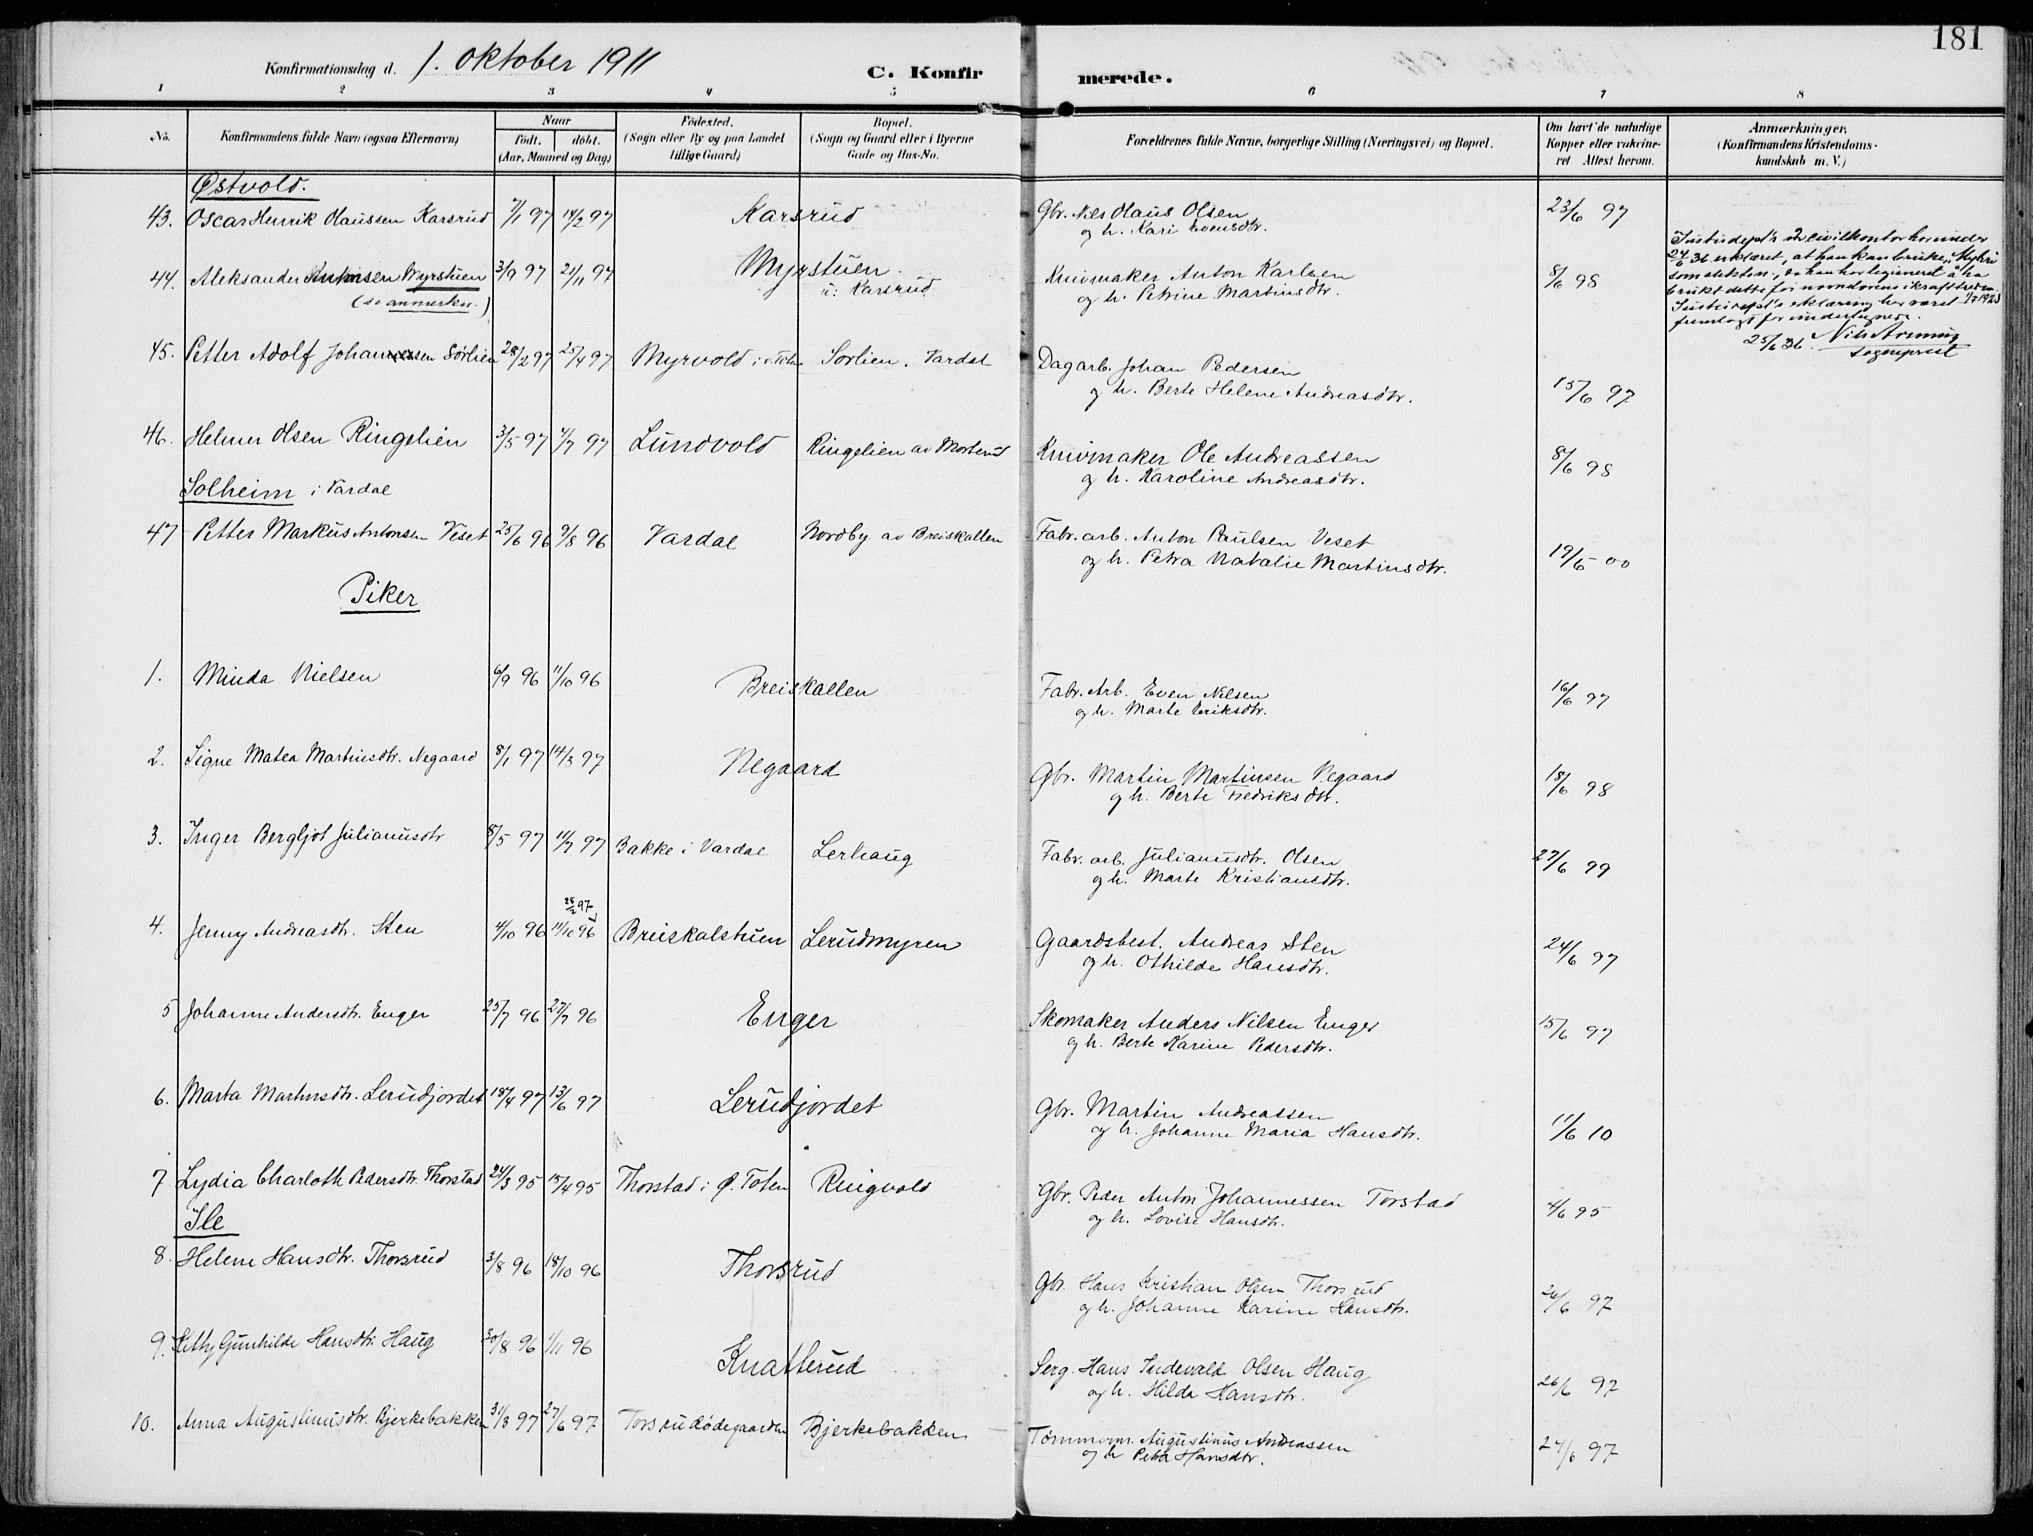 181
Konfirmationsdag d. 1. oktober 1911
C. Konfirmerede.
1 2 3 4 5 6 7 8
No. Konfirmandens fulde Navn (ogsaa Efternavn) Naar født. døbt. (Aar, Maaned og Dag) Fødested. (Sogn eller By og paa Landet tillige Gaard) Bopæl. (Sogn og Gaard eller i Byerne Gade og Hus-No. Forældrenes fulde Navne, borgerlige Stilling (Næringsvei) og Bopæl. Om havt de naturlige Kopper eller vakcineret Attest herom. Anmærkninger. (Konfirmandens Kristendomskundskab m. V.)
Østvold.
43. Oscar Henrik Olaussen Karsrud 7/1 97 14/2 97 Karsrud Gbr. Nils Olaus Olsen 23/6 97
og h. Kari Evensdtr.
44. Aleksander Antonsen Myrstuen 3/9 97 21/11 97 Myrstuen Knivmaker Anton Karlsen 8/6 98
(se anmerkn.) u: Karsrud og h. Petrine Martinsdtr.
Justisdept's 2. civilkontor har under
24/6 36 erklæret, at han kan bruke "Myhri"
som slektsn., da han har legitimert å ha
brukt dette før navnelovens ikrafttreden 1/7 1923
Justisdept's erklæring har været
fremlagt for undertegnede.
25/6 36. Nils
sogneprest
45. Petter Adolf Johannessen Sørlien 28/2 97 25/4 97 Myrvold i v. Toten Sørlien. Vardal Dagarb. Johan Pedersen 15/6 97
og h. Berte Helene Andreasdtr.
46. Helmer Olsen Ringelien 3/5 97 4/7 97 Lundvold Ringelien av Mosterud Knivmaker Ole Andreassen 8/6 98
og h. Karoline Andreasdtr.
Solheim i Vardal
47 Petter Markus Antonsen Veset 25/6 96 9/8 96 Vardal Nordby av Breiskallen Fabr. arb. Anton Paulsen Veset 19/6 00
og h. Petra Natalie Martinsdtr.
Piker
1. Minda Nielsen 6/9 96 11/10 96 Breiskallen Fabr. Arb. Even Nilsen 16/6 97
og h. Marte Eriksdtr.
2. Signe Matea Martinsdtr. Negaard 8/1 97 14/3 97 Negaard Gbr. Martin Martinsen Negaard 18/6 98
og h. Berte Fredriksdtr.
3. Inger Bergljot Julianusdtr 8/5 97 11/7 97 Bakke i Vardal Lerhaug Fabr. arb. Julianusdtr. Olsen 27/6 99
og h. Marte Kristiansdtr.
28/2 97
4. Jenny Andreasdtr. Sten 4/10 96 11/10 96 Breiskalstuen Lerudmyren Gaardsbest. Andreas Sten 24/6 97
og h. Othilde Hansdtr.
5 Johanne Andersdtr. Enger 25/7 96 27/7 96 Enger Skomaker Anders Nilsen Enger 15/6 97
og h. Berte Karine Pedersdtr.
6. Marta Martinsdtr. Lerudjordet 18/4 97 13/6 97 Lerudjordet Gbr. Martin Andreassen 11/6 10
og h. Johanne Maria Hansdtr.
7 Lydia Charloth Pedersdtr. Thorstad 24/3 95 15/4 95 Thorstad i Ø. Toten Ringvold Gbr. Peder Anton Johannessen Torstad 4/6 95
og h. Lovise Hansdtr.
Ile
8. Helene Hansdtr. Thorsrud 3/8 96 18/10 96 Thorsrud Gbr. Hans Kristian Olsen Thorsrud 26/6 97
og h. Johanne Karine Hansdtr.
9. Kitty Gunhilde Hansdtr. Haug 30/8 96 1/11 96 Knatterud Serg. Hans Indevald Olsen Haug 26/6 97
og h. Hilda Hansdtr.
10. Anna Augustinusdtr. Bjerkebakken 31/3 97 27/6 97 Torsrudødegaarden Bjerkebakken Tømmerm. Augustinus Andreassen 24/6 97
og h Petra Hansdtr.